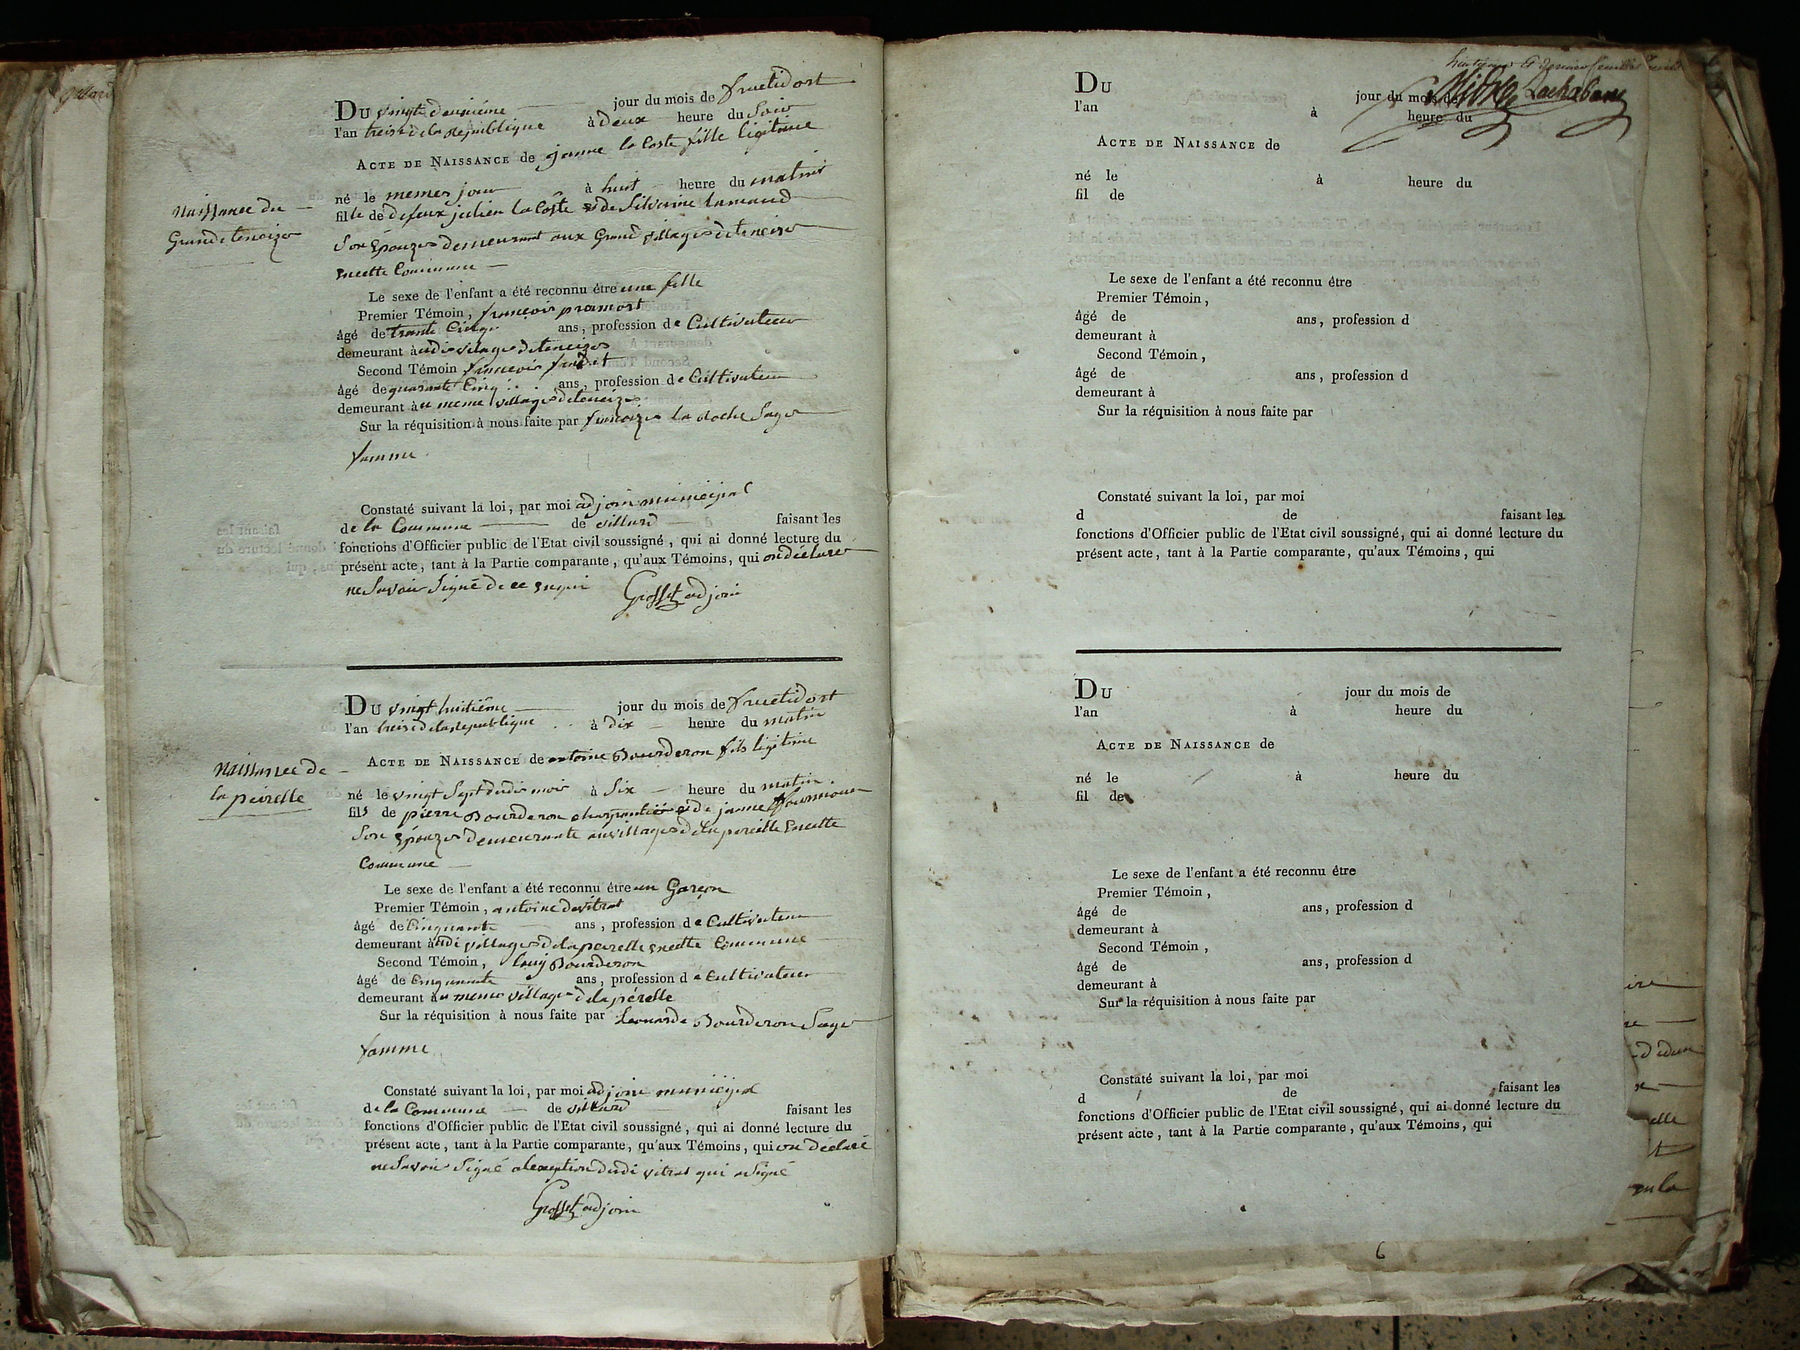 Du vingt deuxiéme jour du mois de fructidort
l'an treise de la Republique à deux heure du Soir
Acte de Naissance de janne la Coste fille legitime
né le memes jour à huit heure du matins
fille de defeux julien la Coste & de Silvaine Lamaud
Son Épouzes demeurant aux Grand villages de teneizes
Encette Commune
Naissance du
Grand teneizes
Le sexe de l'enfant a été reconnu étre une fille
Premier Témoin, francois pramort
âgé de trante Cinq ans, profession de Cultivateur
demeurant à udis vilages de teneizes
Second Témoin francois
âgé de quarante Cinq ans, profession de Cultivateur
demeurant à u meme villages deteneizes
Sur la réquisition à nous faite par francoizes la Roche Sages
famme
Constaté suivant la loi, par moi adjoin municipal
de la Commune de villard faisant les
fonctions d'Officier public de l'Etat civil soussigné, qui ai donné lecture du
présent acte, tant à la Partie comparante, qu'aux Témoins, qui on déclares
ne Savoir Signé de ce enquis
Grosset adjoin
Du vingt huitiéme jour du mois de fructidort
l'an treise de la republique à dix heure du matin
Acte de Naissance de antoine Bourderon fils legitime
Naissance de
la peirelle
né le vingt Sept dudis mois à Six heure du matin.
fils de pierre Bourderon charpantier & de janne fournioux
Son Épouzes demeurante au villages de la pereille Encette
Commune
Le sexe de l'enfant a été reconnu étre un Garçon
Premier Témoin, antoine devitrat
âgé de Cinquante ans, profession de Cultivateur
demeurant à udi villages de la peirelle encette Commune
Second Témoin, louij Bourderon
âgé de Cinquante ans, profession de Cultivateur
demeurant à u memes villages de la pérelle
Sur la réquisition à nous faite par Leonarde Bourderon Sages
famme
Constaté suivant la loi, par moi adjoin municipal
de la Commune de villard faisant les
fonctions d'Officier public de l'Etat civil soussigné, qui ai donné lecture du
présent acte, tant à la Partie comparante, qu'aux Témoins, qui on déclaré
ne Savoir Signé alexeption dudi vitrat qui a Signé
Grosset adjoin
Du jour du mois de
l'an à heure du
Acte de Naissance de
né le à heure du
fil de
Le sexe de l'enfant a été reconnu étre
Premier Témoin,
âgé de ans, profession d
demeurant à
Second Témoin,
âgé de ans, profession d
demeurant à
Sur la réquisition à nous faite par
Constaté suivant la loi, par moi
d de faisant les
fonctions d'Officier public de l'Etat civil soussigné, qui ai donné lecture du
présent acte, tant à la Partie comparante, qu'aux Témoins, qui
Du jour du mois de
l'an à heure du
Acte de Naissance de
né le à heure du
fil de
Le sexe de l'enfant a été reconnu étre
Premier Témoin,
âgé de ans, profession d
demeurant à
Second Témoin,
âgé de ans, profession d
demeurant à
Sur la réquisition à nous faite par
Constaté suivant la loi, par moi
d de faisant les
fonctions d'Officier public de l'Etat civil soussigné, qui ai donné lecture du
présent acte, tant à la Partie comparante, qu'aux Témoins, qui
6